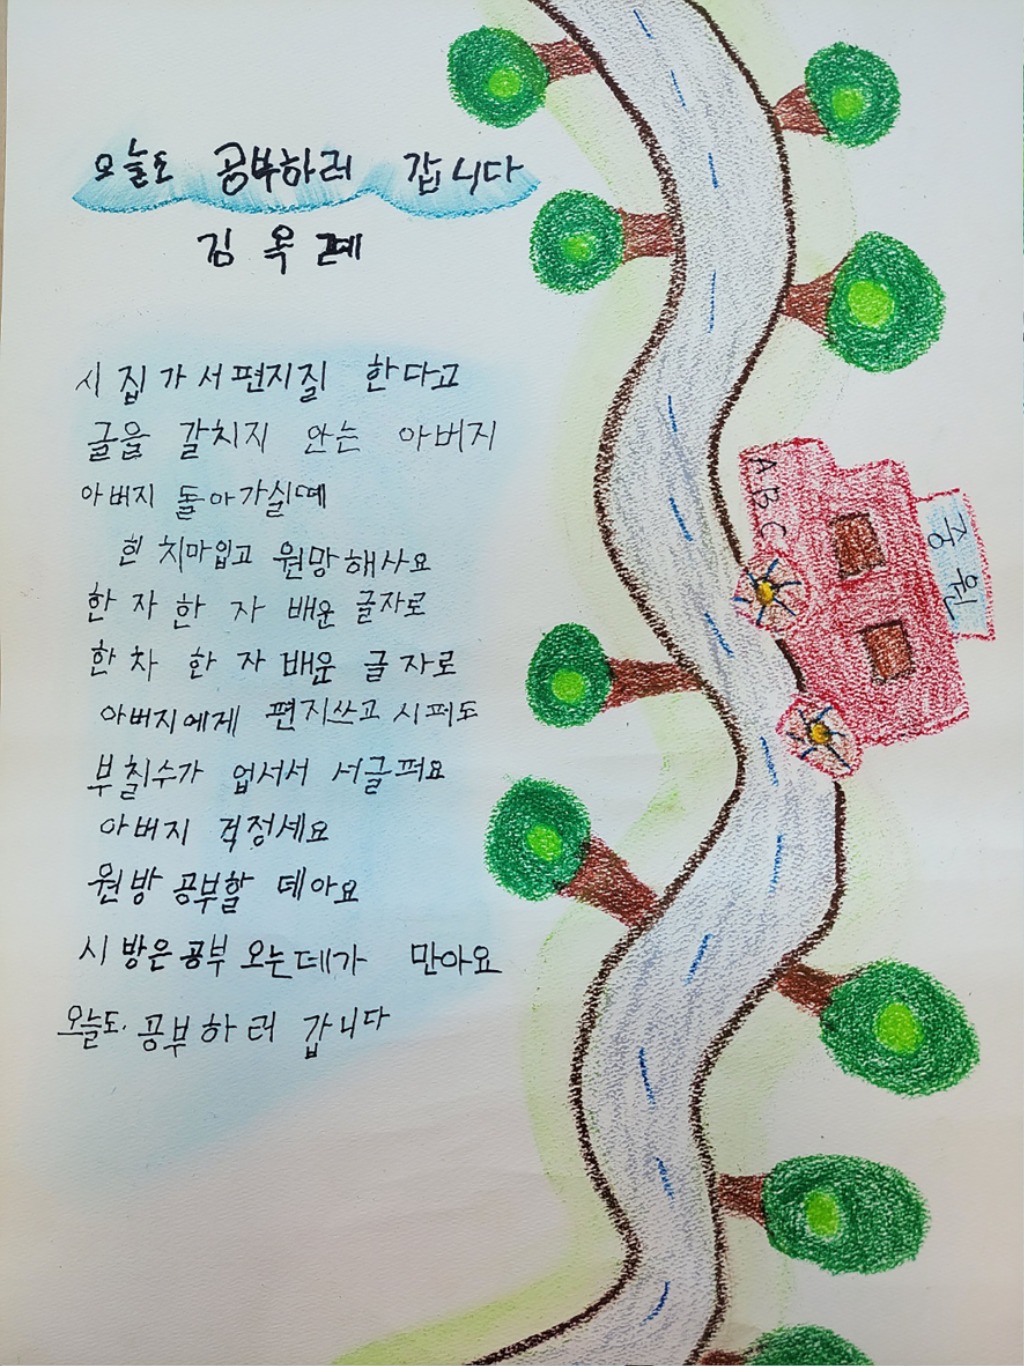 오늘도 공부하러 갑니다
김옥례
시집가서편지질 한다고
글읍 갈치지 안는 아버지
아버지 돌아가실떼
힌 치마입고 원망해사요
한 자 한 자 배운 글자로
한 차 한 자 배운 글자로
아버지에게 편지쓰고 시퍼도
부칠수가 업서서 서글퍼요
아버지 걱정세요
원방 공부할 데아요
시방은공부 오는데가 만아요
오늘도. 공부하러 갑니다
ABC
중원